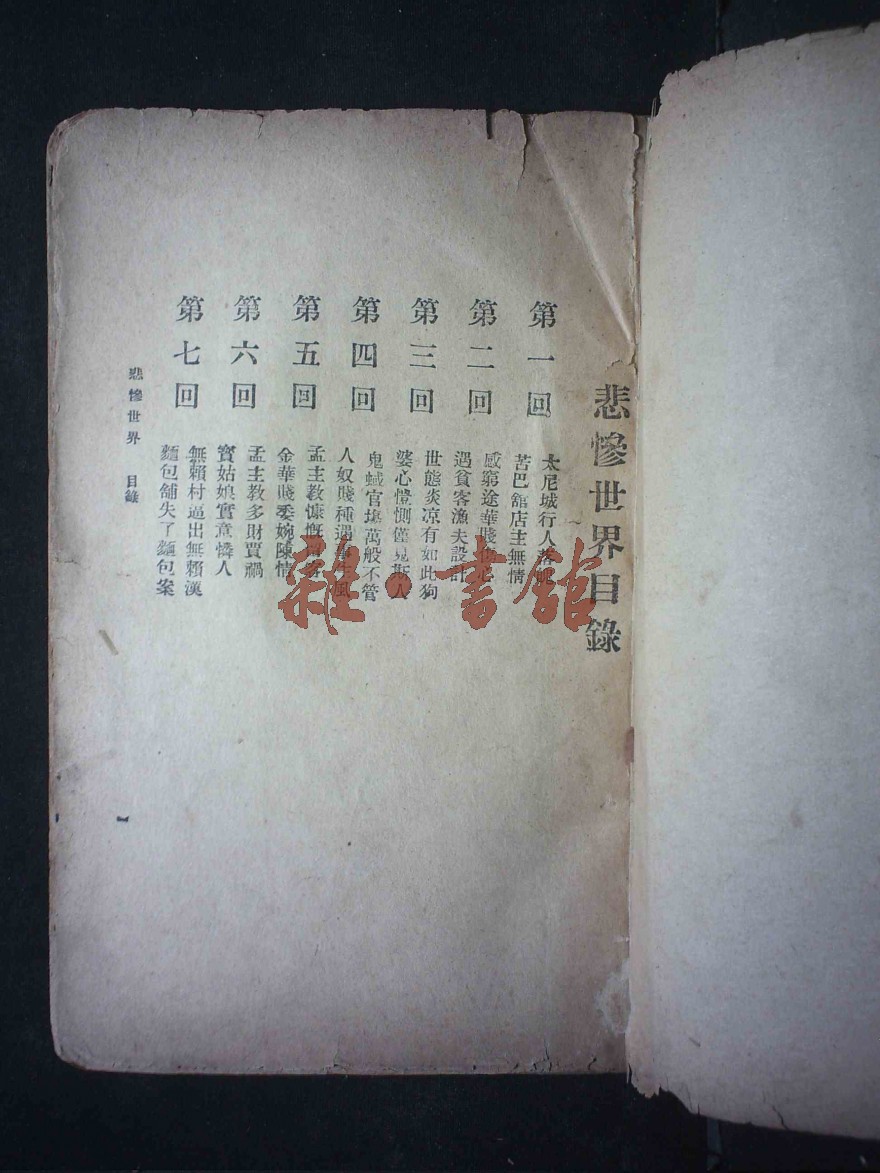 悲慘世界目錄
第一回
太尼城行人落魄
苦巴館店主無情
第二回
感窮途華賤傷心
遇貧客漁夫設計
第三回
世態炎凉有如此狗
婆心愷惻僅見斯人
第四回
鬼蜮官場萬般不管
人奴賤種遇事生風
第五回
孟主教慷慨留客
金華賤委婉陳情
第六回
孟主教多財賈禍
寶姑娘實意憐人
第七回
無賴村逼出無賴漢
麵包舖失了麵包案
悲慘世界 目錄
雜·書舘